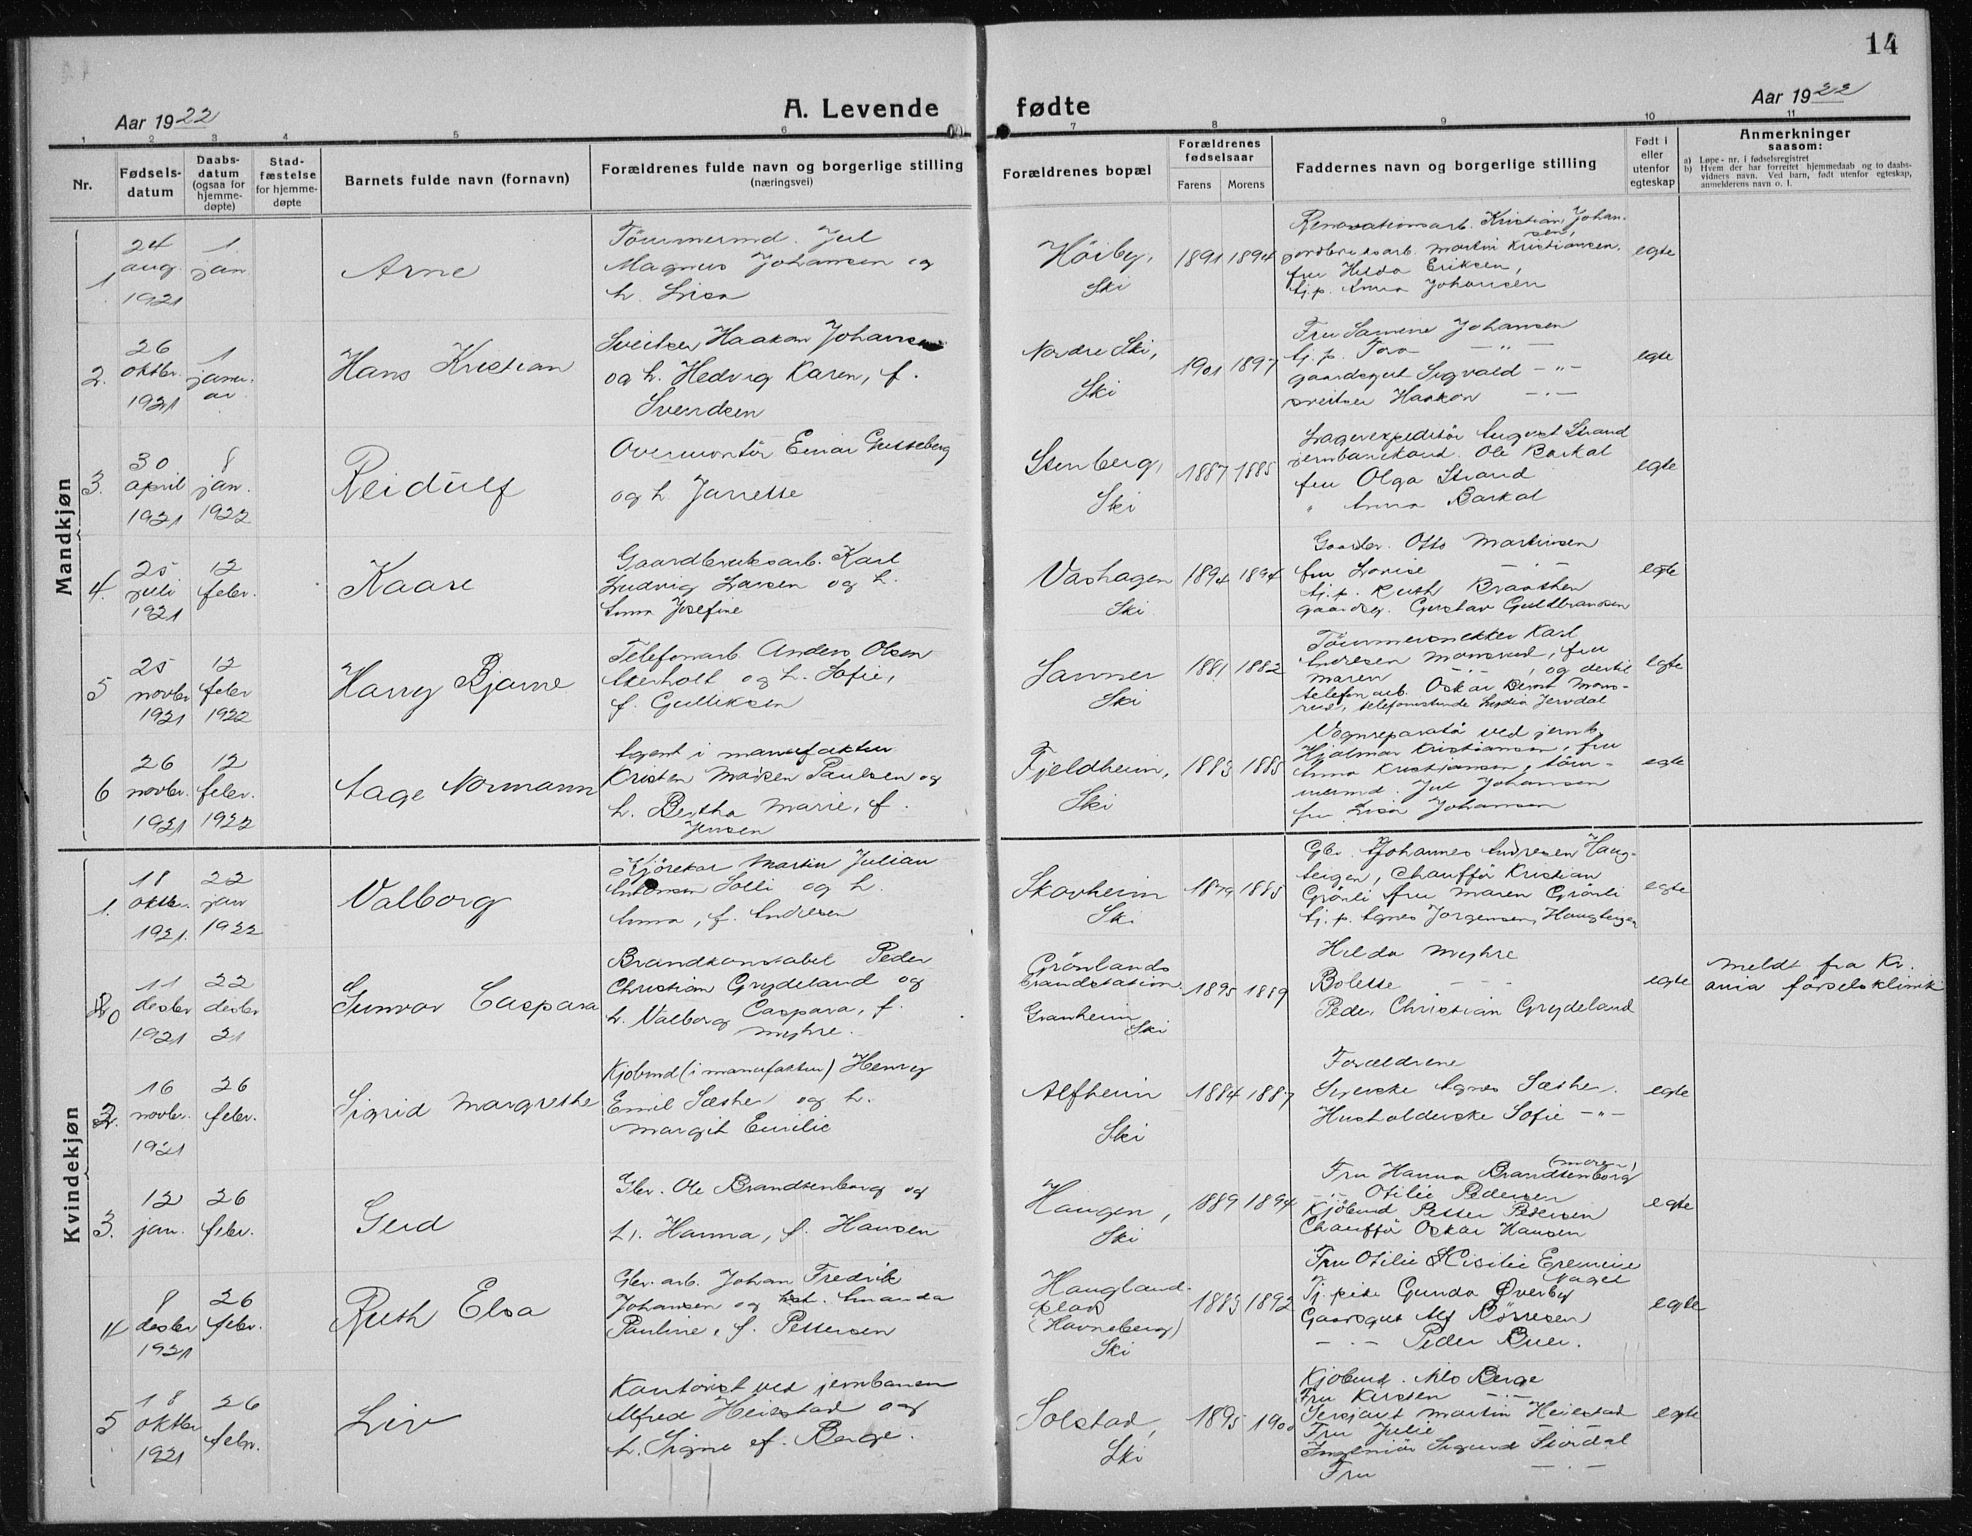 14
Aar 1922
A. Levende fødte
Aar 1922
1 2 3 4 5 6 7 8 9 10 11
Nr.
Fødsels-
datum
Daabs-
datum
(ogsaa for
hjemme-
døpte)
Stad-
fæstelse
for hjemme-
døpte
Barnets fulde navn (fornavn)
Forældrenes fulde navn og borgerlige stilling
(næringsvei)
Forældrenes bopæl
Forældrenes
fødselsaar
Farens Morens
Faddernes navn og borgerlige stilling
Født i
eller
utenfor
egteskap
Anmerkninger
saasom:
a) Løpe-nr. i fødselsregistret
b) Hvem der har forrettet hjemmedaab og to daabs-
vidners navn. Ved barn, født utenfor egteskap,
anmelderens navn o. l.
Mandkjøn
1
24
aug.
1921
1
jan.
Arne
Tømmermd. Jul
Magnus Johansen og
h. Lisa
Høiby,
Ski
1891 1894
Renovationsarb. Kristian Johan-
sen,
jordbruksarb. Martin Kristiansen,
fru Hilda Eriksen,
tj.p. Anna Johansen
egte
2.
26
oktbr.
1921
1
janu-
ar
Hans Kristian
Sveitser Haakon Johansen
og h. Hedvig Karen, f.
Svendsen
Nordre Ski,
Ski
1901 1897
Fru Samine Johansen
tj.p. Tora — " —
gaardsgut Sigvald — " —
sveitser Haakon — " —
egte
3.
30
april
1921
8
jan.
1922
Reidulf
Overmontør Einar Gutteberg
og h. Janette
Stenberg,
Ski
1887 1885
Lagerexpeditør August Strand
jernbanekond. Ole Barkal
fru Olga Strand
" Anna Barkal
egte
4.
25
juli
1921
12
febr.
Kaare
Gaardbruksarb. Karl
Ludvig Larsen og h.
Anna Josefine
Vashagen
Ski
1894 1894
Gaardbr. Otto Martinsen
fru Lovise — " —
tj.p. Ruth Braathen
gaardsg. Gustav Guldbrandsen
egte
5
25
novbr
1921
12
febr
1922
Harry Bjarne
Telefonarb. Anders Olsen
Akerholt og h. Sofie,
f. Gulliksen
Sanner
Ski
1881 1882
Tømmersnekker Karl
Andresen Monsrud, fru
Maren — " —, og dertil
telefonarb. Oskar Mons-
rud, telefonistinde Lydia Jervdal
egte
6
26
novbr.
1921
12
febr.
1922
Aage Normann
Agent i manufaktur
Kristen Madsen Paulsen og
h. Bertha Marie, f.
Jensen
Fjeldheim,
Ski
1883 1885
Vognreparatør ved jernb.
Hjalmar Kristiansen, fru
Anna Kristiansen, tøm-
mermd. Jul Johansen
fru Lisa Johansen
egte
Kvindekjøn
1.
18
oktbr.
1921.
22
jan
1922
Valborg
Kjørekar Martin Julian
Antonsen Solli og h.
Anna, f. Andresen
Skovheim
Ski
1879 1885
Gbr. Johannes Andresen Haug-
tergen, Chauffør Kristian
Grønli fru Maren Grønli
tj.p. Agnes Jørgensen, Haugtergen
egte
11
desbr
1921
22
desbr
21
Gunvor Caspara
Brandkonstabel Peder
Christian Grydeland og
h. Valborg Caspara, f.
Myhre.
Grønlands
Brandstation.
Granheim
Ski
1895 1889
Hilda Myhre
Bolette — " —
Peder Christian Grydeland
egte
Meldt fra Kr.
ania fødselsklinik
2.
16
novbr.
1921
26
febr.
Sigrid Margrethe
Kjøbmd (i manufaktur) Henry
Emil Sæther og h.
Margit Emilie
Alfheim
Ski
1884 1887
Forældrene
Syerske Agnes Sæther.
Husholderske Sofie — " —
egte
3.
12
jan.
26
febr.
Gerd
Gbr. Ole Brandtenborg og
h. Hanna, f. Hansen
Haugen,
Ski
1889 1894
Fru Hanna Brandtenborg (moren)
— " — Otilie Pedersen
Kjøbmd Petter Pedersen
Chauffør Oskar Hansen
egte
4
8
desbr
1921
26
febr.
Ruth Elsa
Gbr. arb. Johan Fredrik
Johansen og hst. Amanda
Pauline, f. Pettersen
Haugland-
plads
(Havneberg)
Ski
1883 1892
Fru Otilie
Tj. pike Gunda Øverby
Gaardsgut Alf Børresen
— " — Peder Buer.
egte
5
18
oktbr
1921
26
febr.
Liv
Kantorist ved jernbanen
Alfred Heiestad og
h. Signe f. Berge.
Solstad,
Ski
1895 1900
Kjøbmd. Nils Berge
Fru Kirsten — " —
Sersjant Martin Heiestad
Fru Julie — " —
Ingeniør Sigurd Stordal
Fru — " —
egte